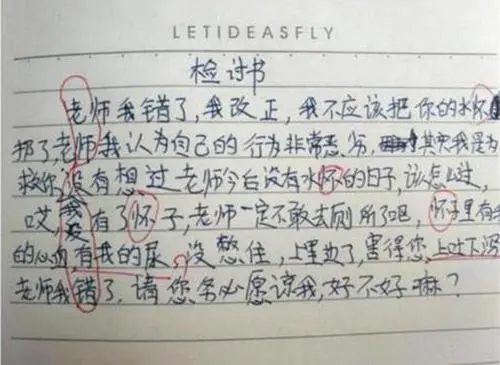 LETIDEASFLY
检讨书
老师我错了，我改正，我不应该把你的水怀
扔了，老师我认为自己的行为非常恶劣，其实我是为
救你，没有想过老师今后没有水怀的日子，该怎么过，
哎，我没有了怀子，老师一定不敢去厕所了吧，怀子里有我
的心血，有我的尿，没憋住，上里边了，害得您上吐下泻
老师我错了，请您务必愿谅我，好不好嘛？